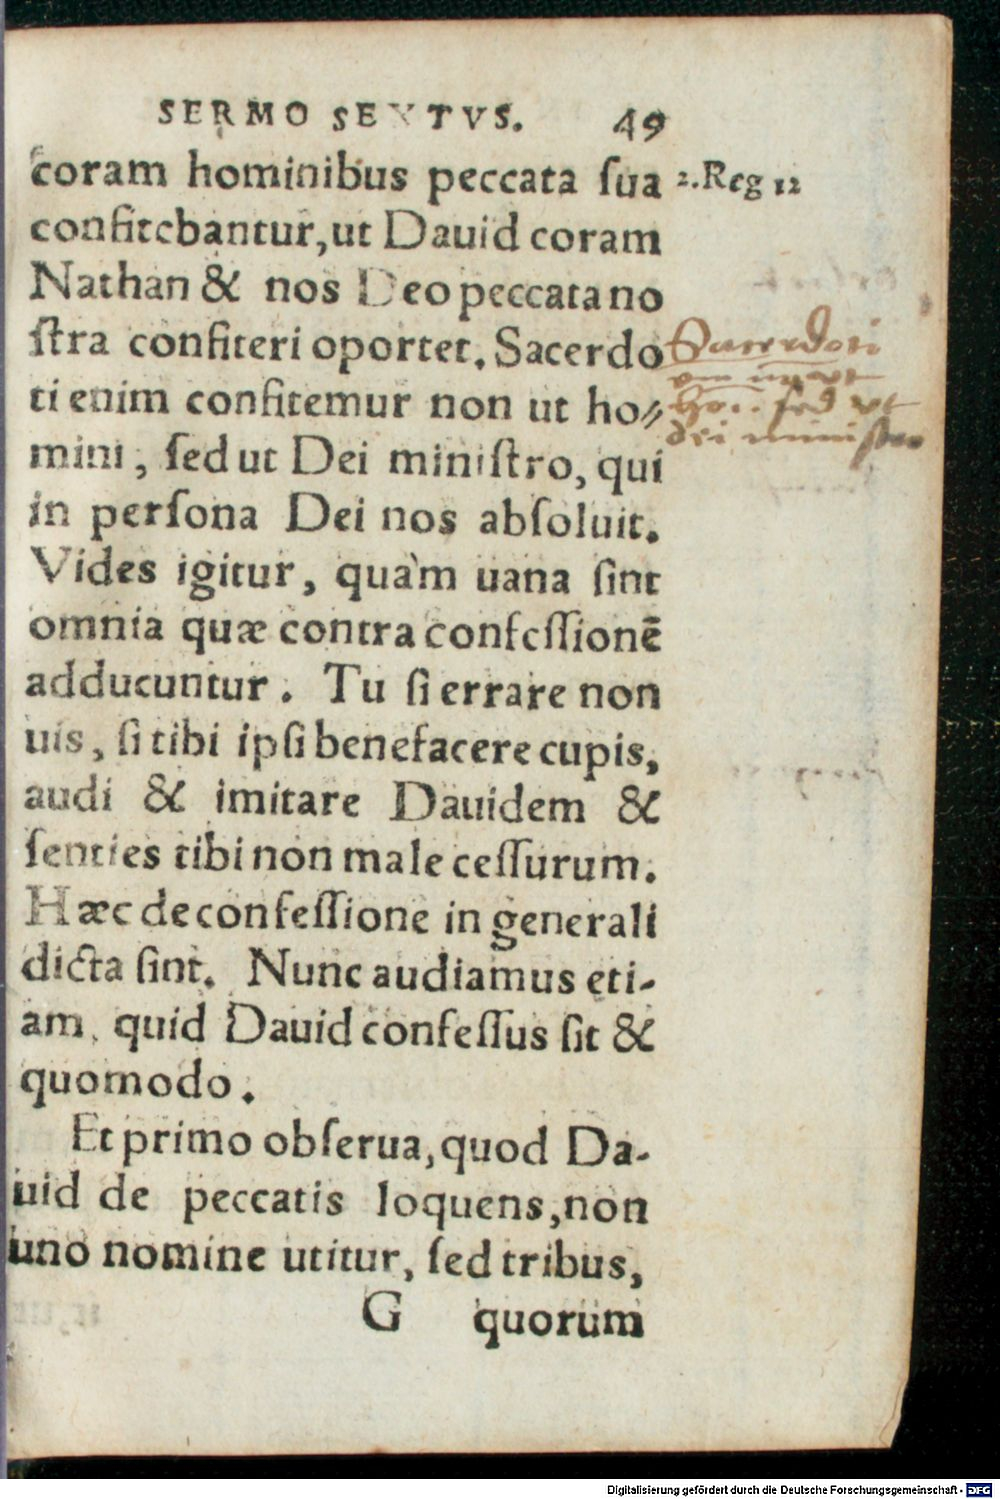 SERMO SEXTVS. 49
coram hominibus peccata ſua 2.Reg 12
confitebantur,ut Dauid coram
Nathan & nos Deo peccata no
ſtra confiteri oportet. Sacerdo
ti enim confitemur non ut ho⸗
mini, ſed ut Dei miniſtro, qui
in perſona Dei nos abſoluit.
Vides igitur, quàm uana ſint
omnia quæ contra confeſſionē
adducuntur. Tu ſi errare non
uis, ſi tibi ipſi benefacere cupis,
audi & imitare Dauidem &
ſenties tibi non male ceſſurum.
Hæc de confeſſione in generali
dicta ſint. Nunc audiamus eti-
am, quid Dauid confeſſus ſit &
quomodo.
Et primo obſerua,quod Da-
uid de peccatis loquens,non
uno nomine utitur, ſed tribus,
G quorum
Sacerdoti
ſed vt
dei miniſtro
Digitalisierung gefördert durch die Deutsche Forschungsgemeinschaft - DFG